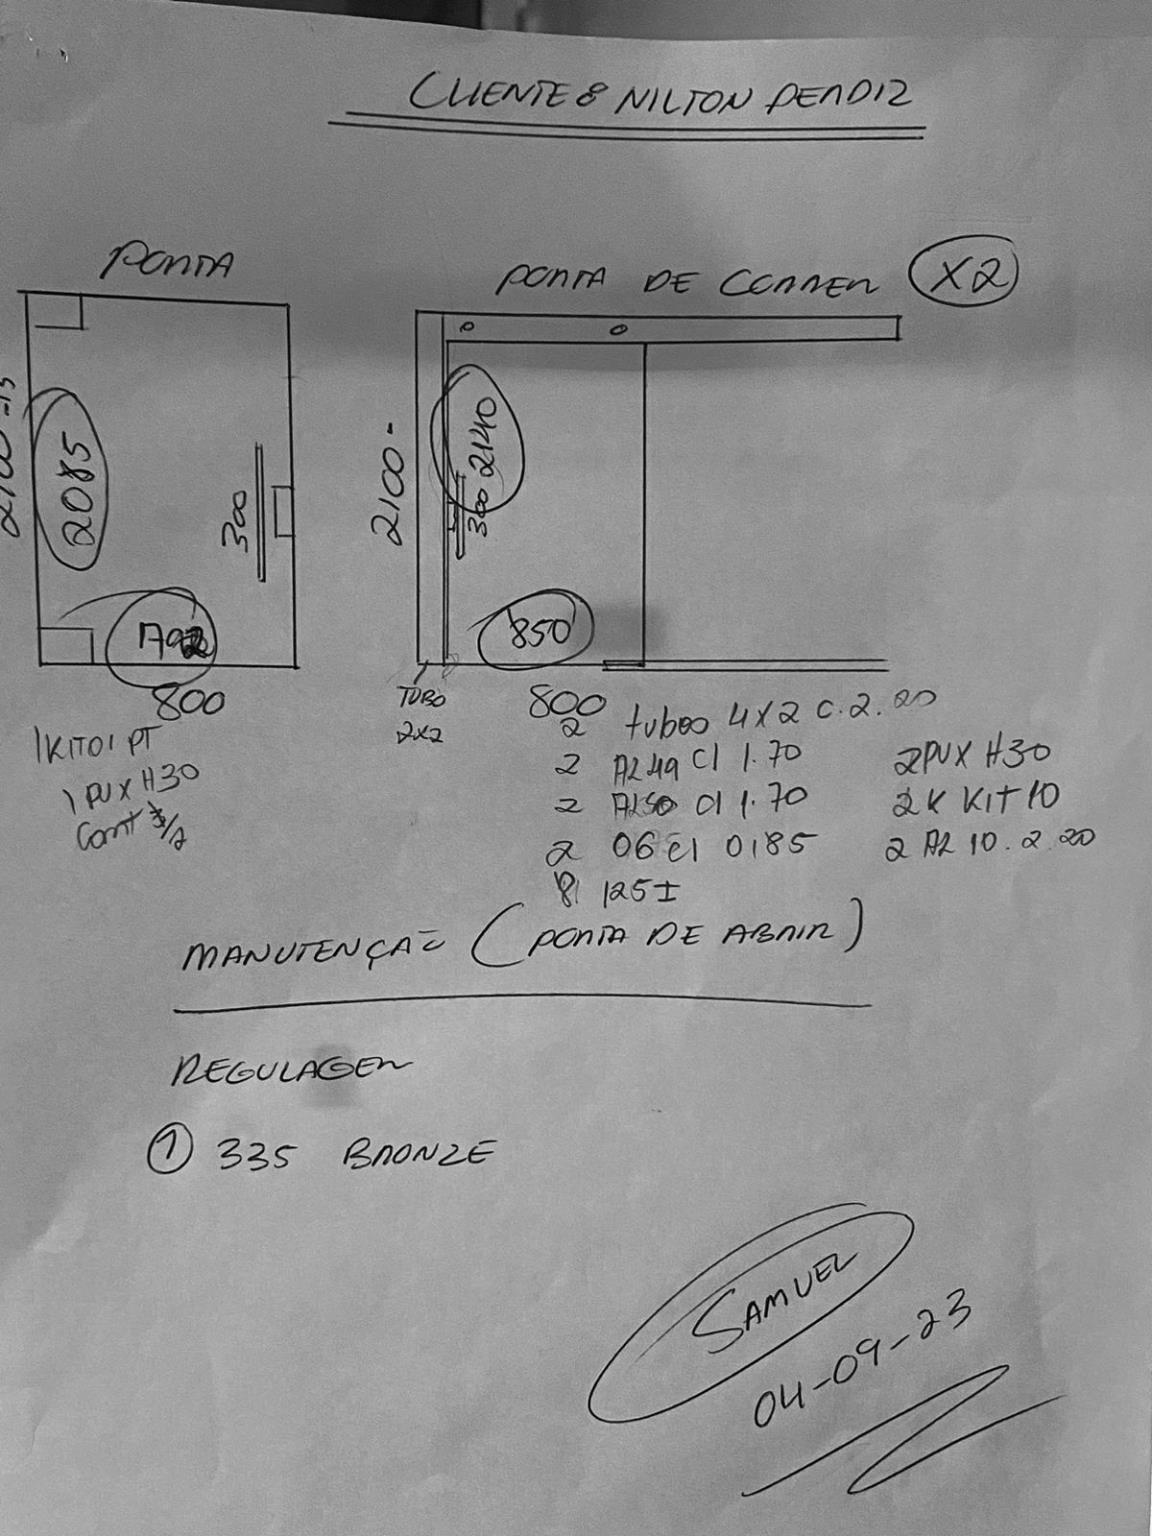 CLIENTE: NILTON PERDIZ
PORTA
PORTA DE CORRER X2
2100 -15
2085
300
792
800
2100 -
2140
300
850
800
TUBO
2X2
1 KIT 01 PT
1 PUX H30
2 tubos 4X2 C. 2.20
2 AL 49 C/ 1.70
2 AL50 C/ 1.70
2 06 C/ 0,85
8 125 I
2 PUX H30
2 K KIT 10
2 AL 10. 2.20
MANUTENÇÃO (PORTA DE ABRIR)
REGULAGEM
1 335 BRONZE
SAMUEL
04-09-23